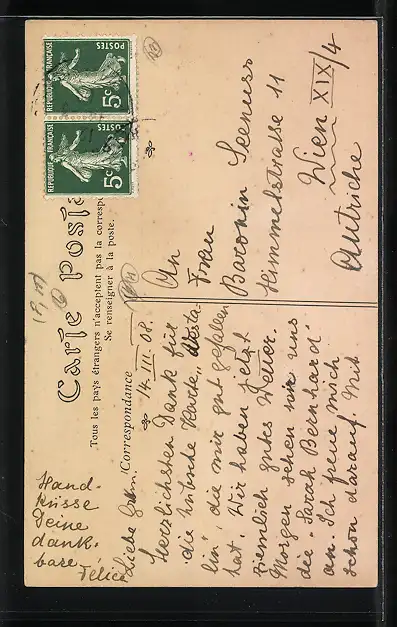 RÉPUBLIQUE FRANÇAISE
POSTES
5c
RÉPUBLIQUE FRANÇAISE
POSTES
5c
Carte Posta
Tous les pays étrangers n'acceptent pas la correspo
Se renseigner à la poste.
Correspondance
14. III. 08.
Liebe
Herzlichsten Dank für
die hübsche Karte „Vesta-
lin", die mir gut gefallen
hat. Wir haben jetzt
ziemlich gutes Wetter.
Morgen sehen wir uns
die „Sarah Bernhard"
an. Ich freue mich
schon darauf. Mit
Hand-
küsse
Deine
dank-
bare
Félice
An
Frau
Baronin Seenuss
Himmelstrasse 11
Wien XIX/4
Autriche